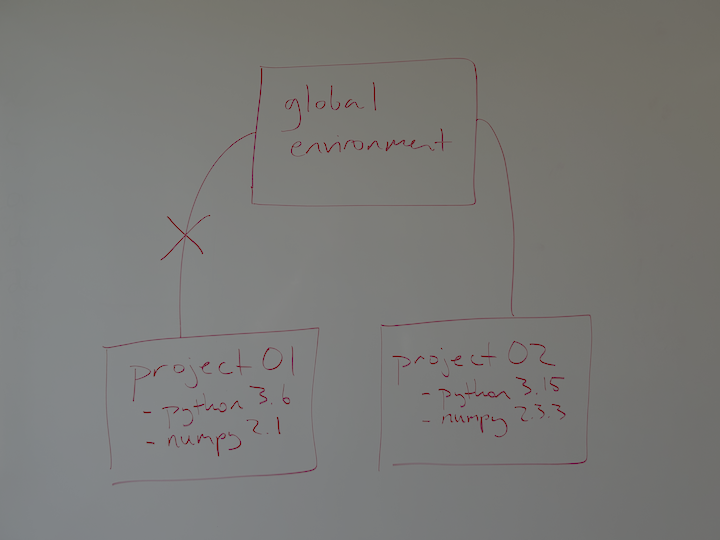 global
environment
project 01
- python 3.6
- numpy 2.1
project 02
- python 3.15
- numpy 2.3.3